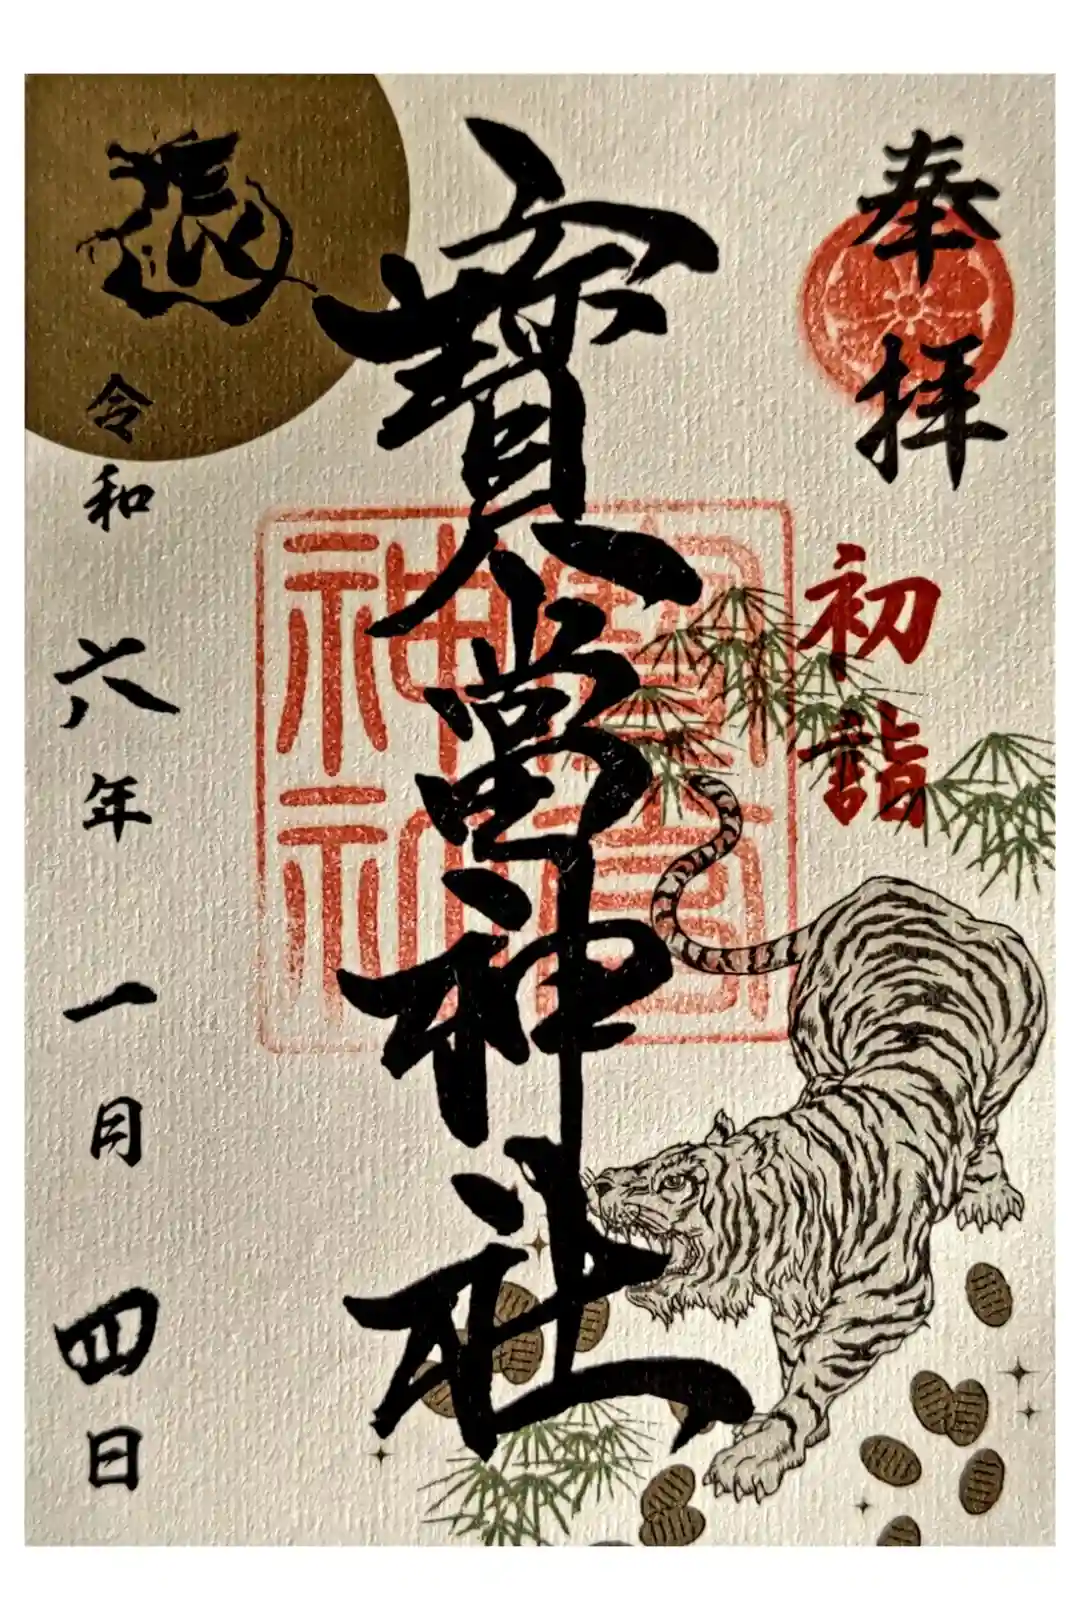 奉拝
初詣
寶當神社
神社
令和六年一月四日